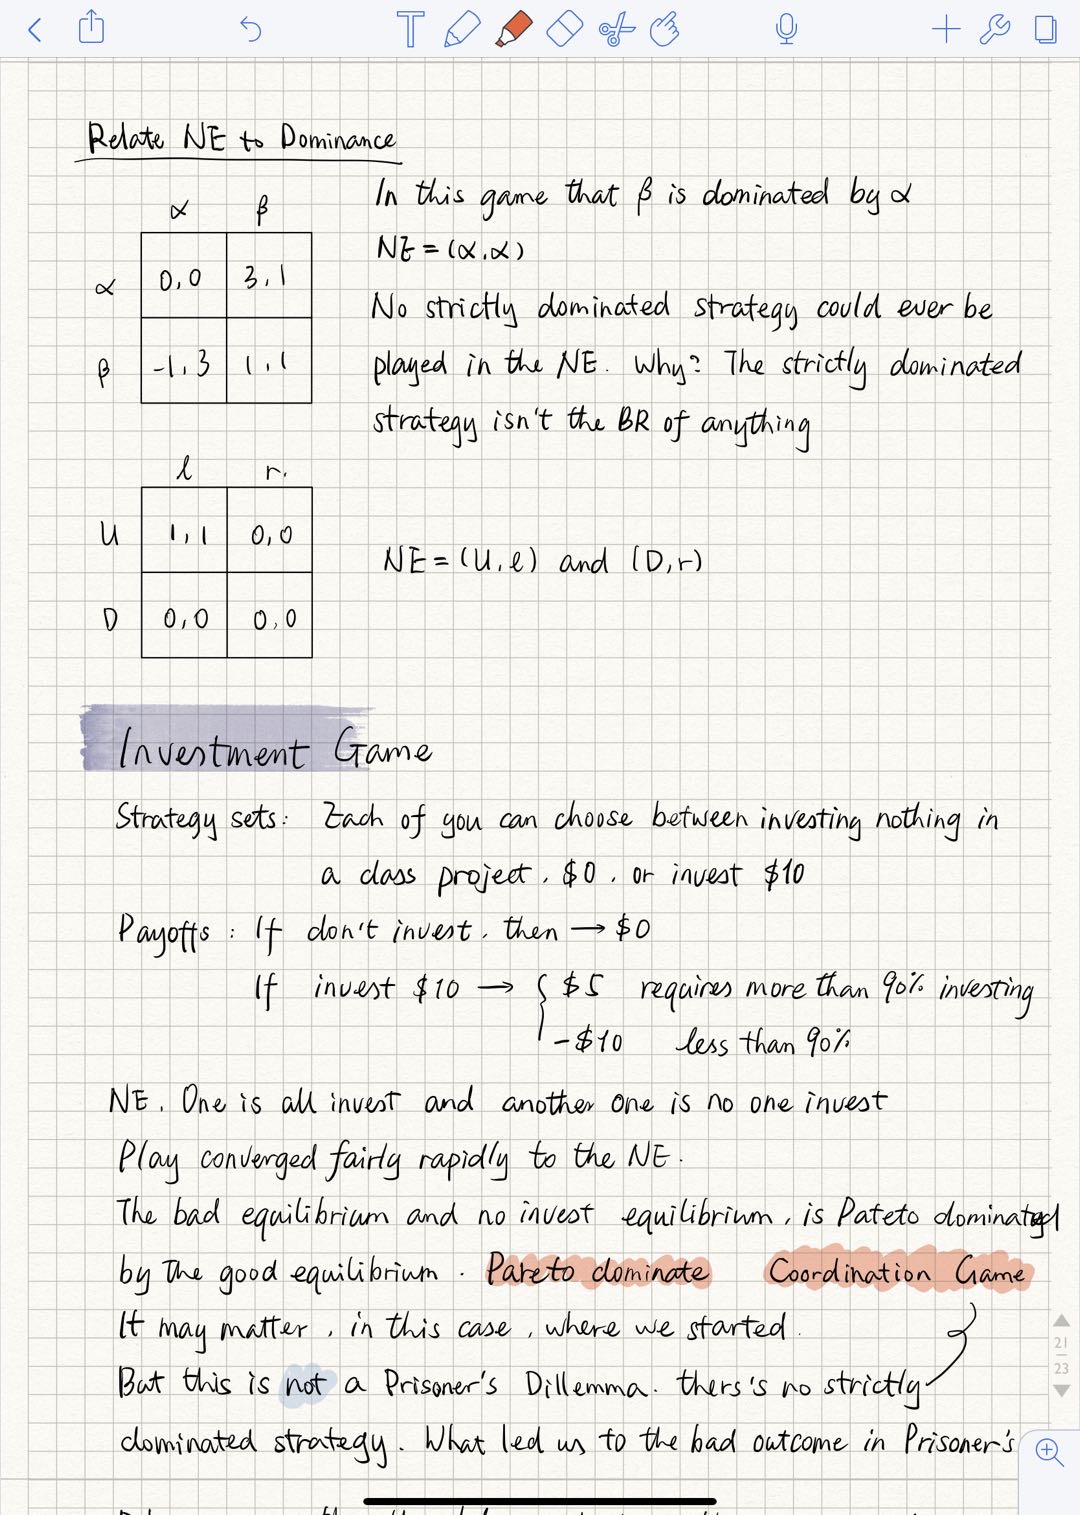 Relate NE to Dominance
α β
α 0,0 3,1
β -1,3 1,1
In this game that β is dominated by α
NE = (α,α)
No strictly dominated strategy could ever be
played in the NE. Why? The strictly dominated
strategy isn't the BR of anything
l r.
U 1,1 0,0
D 0,0 0,0
NE = (U,l) and (D,r)
Investment Game
Strategy sets: Each of you can choose between investing nothing in
a class project, $0, or invest $10
Payoffs: If don't invest, then → $0
If invest $10 → { $5 requires more than 90% investing
-$10 less than 90%
NE. One is all invest and another one is no one invest
Play converged fairly rapidly to the NE.
The bad equilibrium and no invest equilibrium, is Pateto dominated
by the good equilibrium. Pareto dominate Coordination Game
It may matter, in this case, where we started.
But this is not a Prisoner's Dillemma. thers's no strictly
dominated strategy. What led us to the bad outcome in Prisoner's
21
23